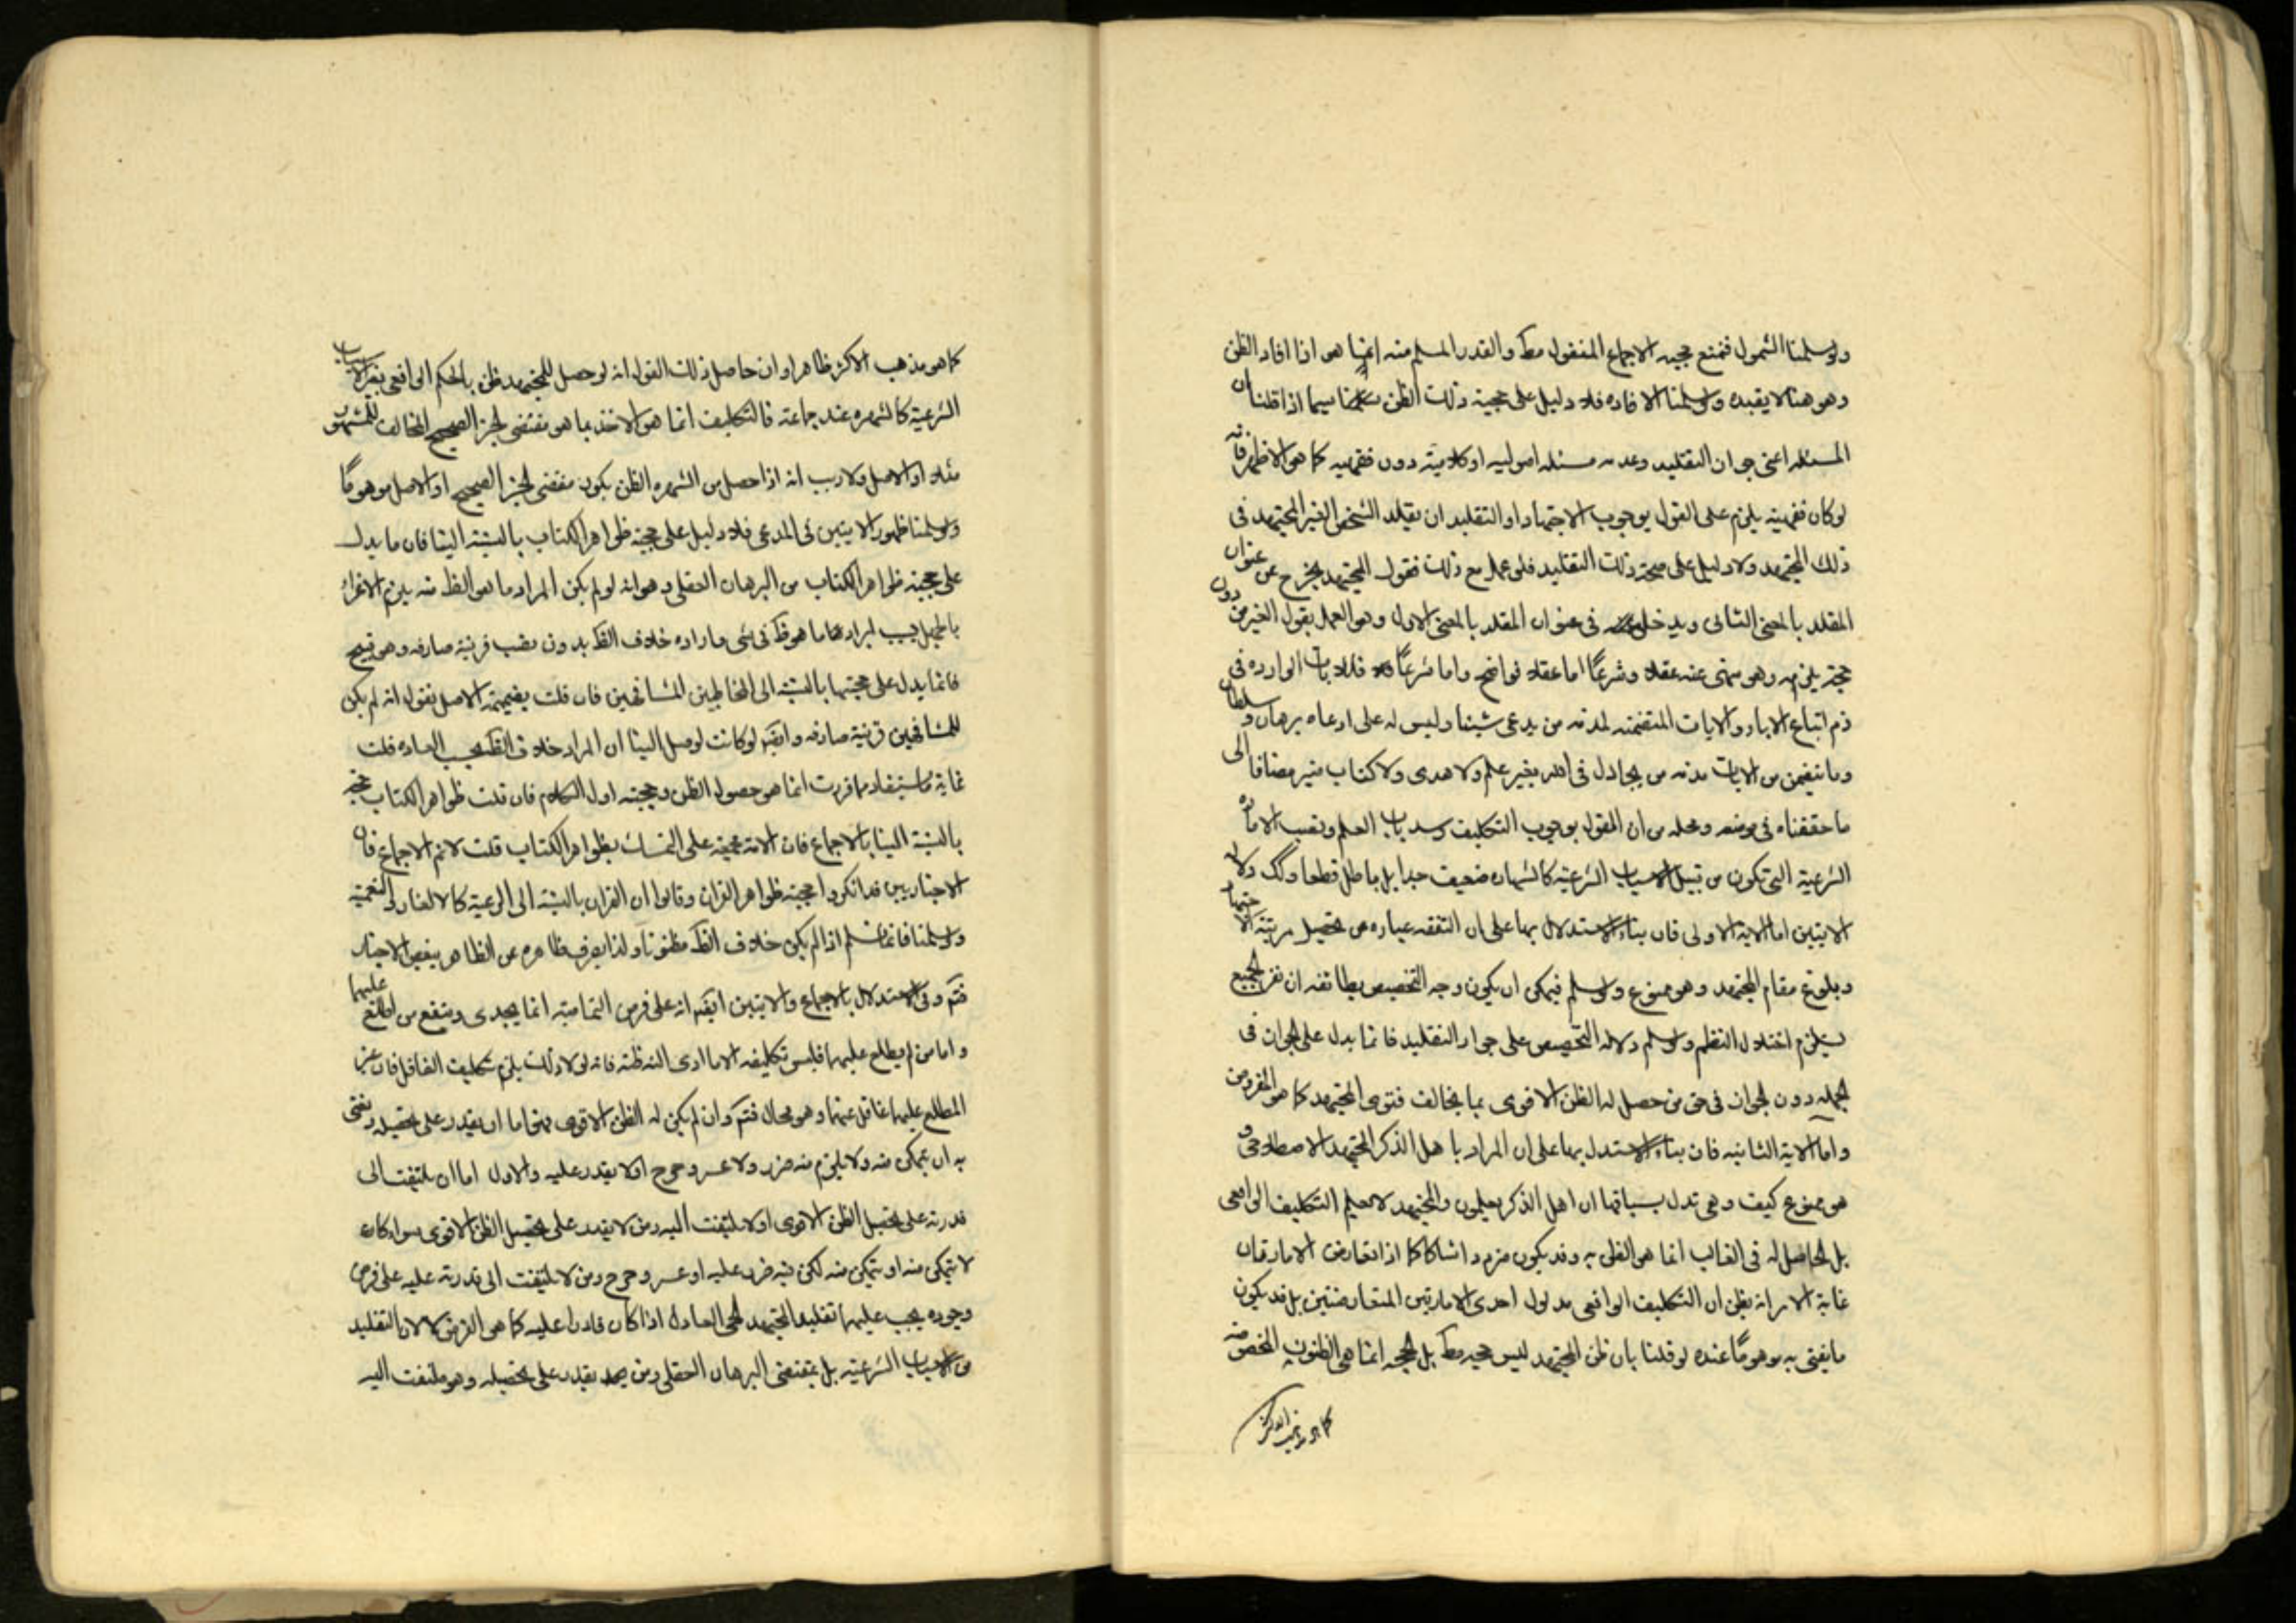 ولو سلمنا الشمول فنمنع حجيه الاجماع المنقول مط والقدر المسلم منه انما هو اذا افاد الظن
وهو هنا لا يفيده ولو سلمنا الافاده فلا دليل على حجية ذلك الظن هنا سيما اذا قلنا ان
المسئله اعنى جواز التقليد وعدمه مسئله اصوليه او كلامية دون فقهيه كما هو الاظهر فانه
لو كان فقهية يلزم على القول بوجوب الاجتهاد او التقليد ان يقلد الشخص الغير المجتهد فى
ذلك المجتهد ولا دليل على صحة ذلك التقليد فلو عمل مع ذلك فقول المجتهد يخرج عن عنوان
المقلد بالمعنى الثانى ويدخل فى عنوان المقلد بالمعنى الاول وهو العمل بقول الغير من دون
حجة يلزمه وهو منهى عنه عقلا وشرعًا اما عقلا فواضح واما شرعًا فللايات الوارده فى
ذم اتباع الاباء والايات المتضمنه لمذمه من يدعى شيئا وليس له على ادعاه برهان و سلطان
وما تتضمن من الايات مذمه من يجادل فى الله بغير علم ولا هدى ولا كتاب منير مضافا الى
ما حققناه فى موضعه ومحله من ان القول بوجوب التكليف وسد باب العلم ونصب الاماره
الشرعية التى تكون من قبيل الاسباب الشرعية كالشهاده ضعيف جدا بل باطل قطعا وكك دلاله
الايتين اما الاية الاولى فان بناء الاستدلال بها على ان التفقه عباره عن تحصيل مرتبة الاجتهاد
وبلوغ مقام المجتهد وهو ممنوع ولو سلم فيمكن ان يكون وجه التخصيص بطائفه ان نفر الجميع
يستلزم اختلال النظم ولو سلم دلاله التخصيص على جواز التقليد فانما يدل على الجواز فى
الجمله دون الجواز فى حق من حصل له الظن الاقوى بما يخالف فتوى المجتهد كما هو المفروض
واما الاية الثانيه فان بناء الاستدلال بها على ان المراد باهل الذكر المجتهد الاصطلاحى و
هو ممنوع كيف وهى تدل بسياقها ان اهل الذكر يعلمون والمجتهد لا يعلم التكليف الواقعى
بل الحاصل له فى الغالب انما هو الظن به وقد يكون مترددا شاكا كما اذا تعارض الامارتان
غاية الامر انه يظن ان التكليف الواقعى مدلول احدى الامارتين المتعارضتين بل قد يكون
ما يفتى به موهومًا عنده لو قلنا بان ظن المجتهد ليس حجيه مط بل الحجه انما هى الظنون المخصوصه
كما هو مذهب الاكثر
كما هو مذهب الاكثر ظاهرا وان حاصل ذلك القول انه لو حصل للمجتهد ظن بالحكم الواقعى بغير الاسباب
الشرعية كالشهره عند جماعة فالتكليف انما هو الاخذ بما هو مقتضى الخبر الصحيح المخالف للمشهور
مثلا او الاصل ولا ريب انه اذا حصل من الشهره الظن يكون مقتضى الخبر الصحيح او الاصل موهومًا
ولو سلمنا ظهور الايتين فى المدعى فلا دليل على حجية ظواهر الكتاب بالنسبة الينا فان ما يدل
على حجية ظواهر الكتاب من البرهان العقلى وهو انه لو لم يكن المراد ما هو الظ منه يلزم الاغراء
بالجهل بسبب ايراد ما هو ظ فى شى واراده خلاف الظ بدون نصب قرينة صارفه وهو قبيح
فانما يدل على حجيتها بالنسبة الى المخاطبين المشافهين فان قلت بضميمة الاصل نقول انه لم يكن
للمشافهين قرينة صارفه وايضًا لو كانت لوصل الينا ان المراد خلاف الظ بحسب العاده قلت
غاية ما يستفاد مما قررت انما هو حصول الظن وحجيته اول الكلام فان قلت ظواهر الكتاب حجة
بالنسبة الينا بالاجماع فان الامة مجمعة على التمسك بظواهر الكتاب قلت لا نم الاجماع فان
الاخباريين قد انكروا حجية ظواهر القران وقالوا ان القران بالنسبة الى الرعية كالالغاز والتعمية
ولو سلمنا فانما نسلم اذا لم يكن خلاف الظ مظنونا ولذا يصرف ظاهره عن الظاهر ببعض الاخبار
فتم وفى الاستدلال بالاجماع والايتين ايضًا انه على فرض التمامية انما يجدى وينفع من اطلع عليهما
واما من لم يطلع عليهما فليس تكليفه الا ما ادى اليه ظنه فانه لولا ذلك يلزم تكليف الغافل فان غير
المطلع عليهما غافل عنهما وهو محال فتم وان لم يكن له الظن الاقوى فهو اما ان يقدر على تحصيله يعنى
به ان يتمكن منه ولا يلزم منه ضرر ولا عسر وحرج او لا يقدر عليه والاول اما ان يلتفت الى
قدرته على تحصيل الظن الاقوى او لا يلتفت اليه ومن لا يقدر على تحصيل الظن الاقوى سواء كان
لا يتمكن منه او يتمكن منه لكن فيه ضرر عليه او عسر وحرج ومن لا يلتفت الى قدرته عليه على فرض
وجوده يجب عليهما تقليد المجتهد الحى العادل اذا كان قادرا عليه كما هو الفرض لا لان التقليد
من الاسباب الشرعية بل بمقتضى البرهان العقلى ومن يقدر على تحصيله وهو ملتفت اليه